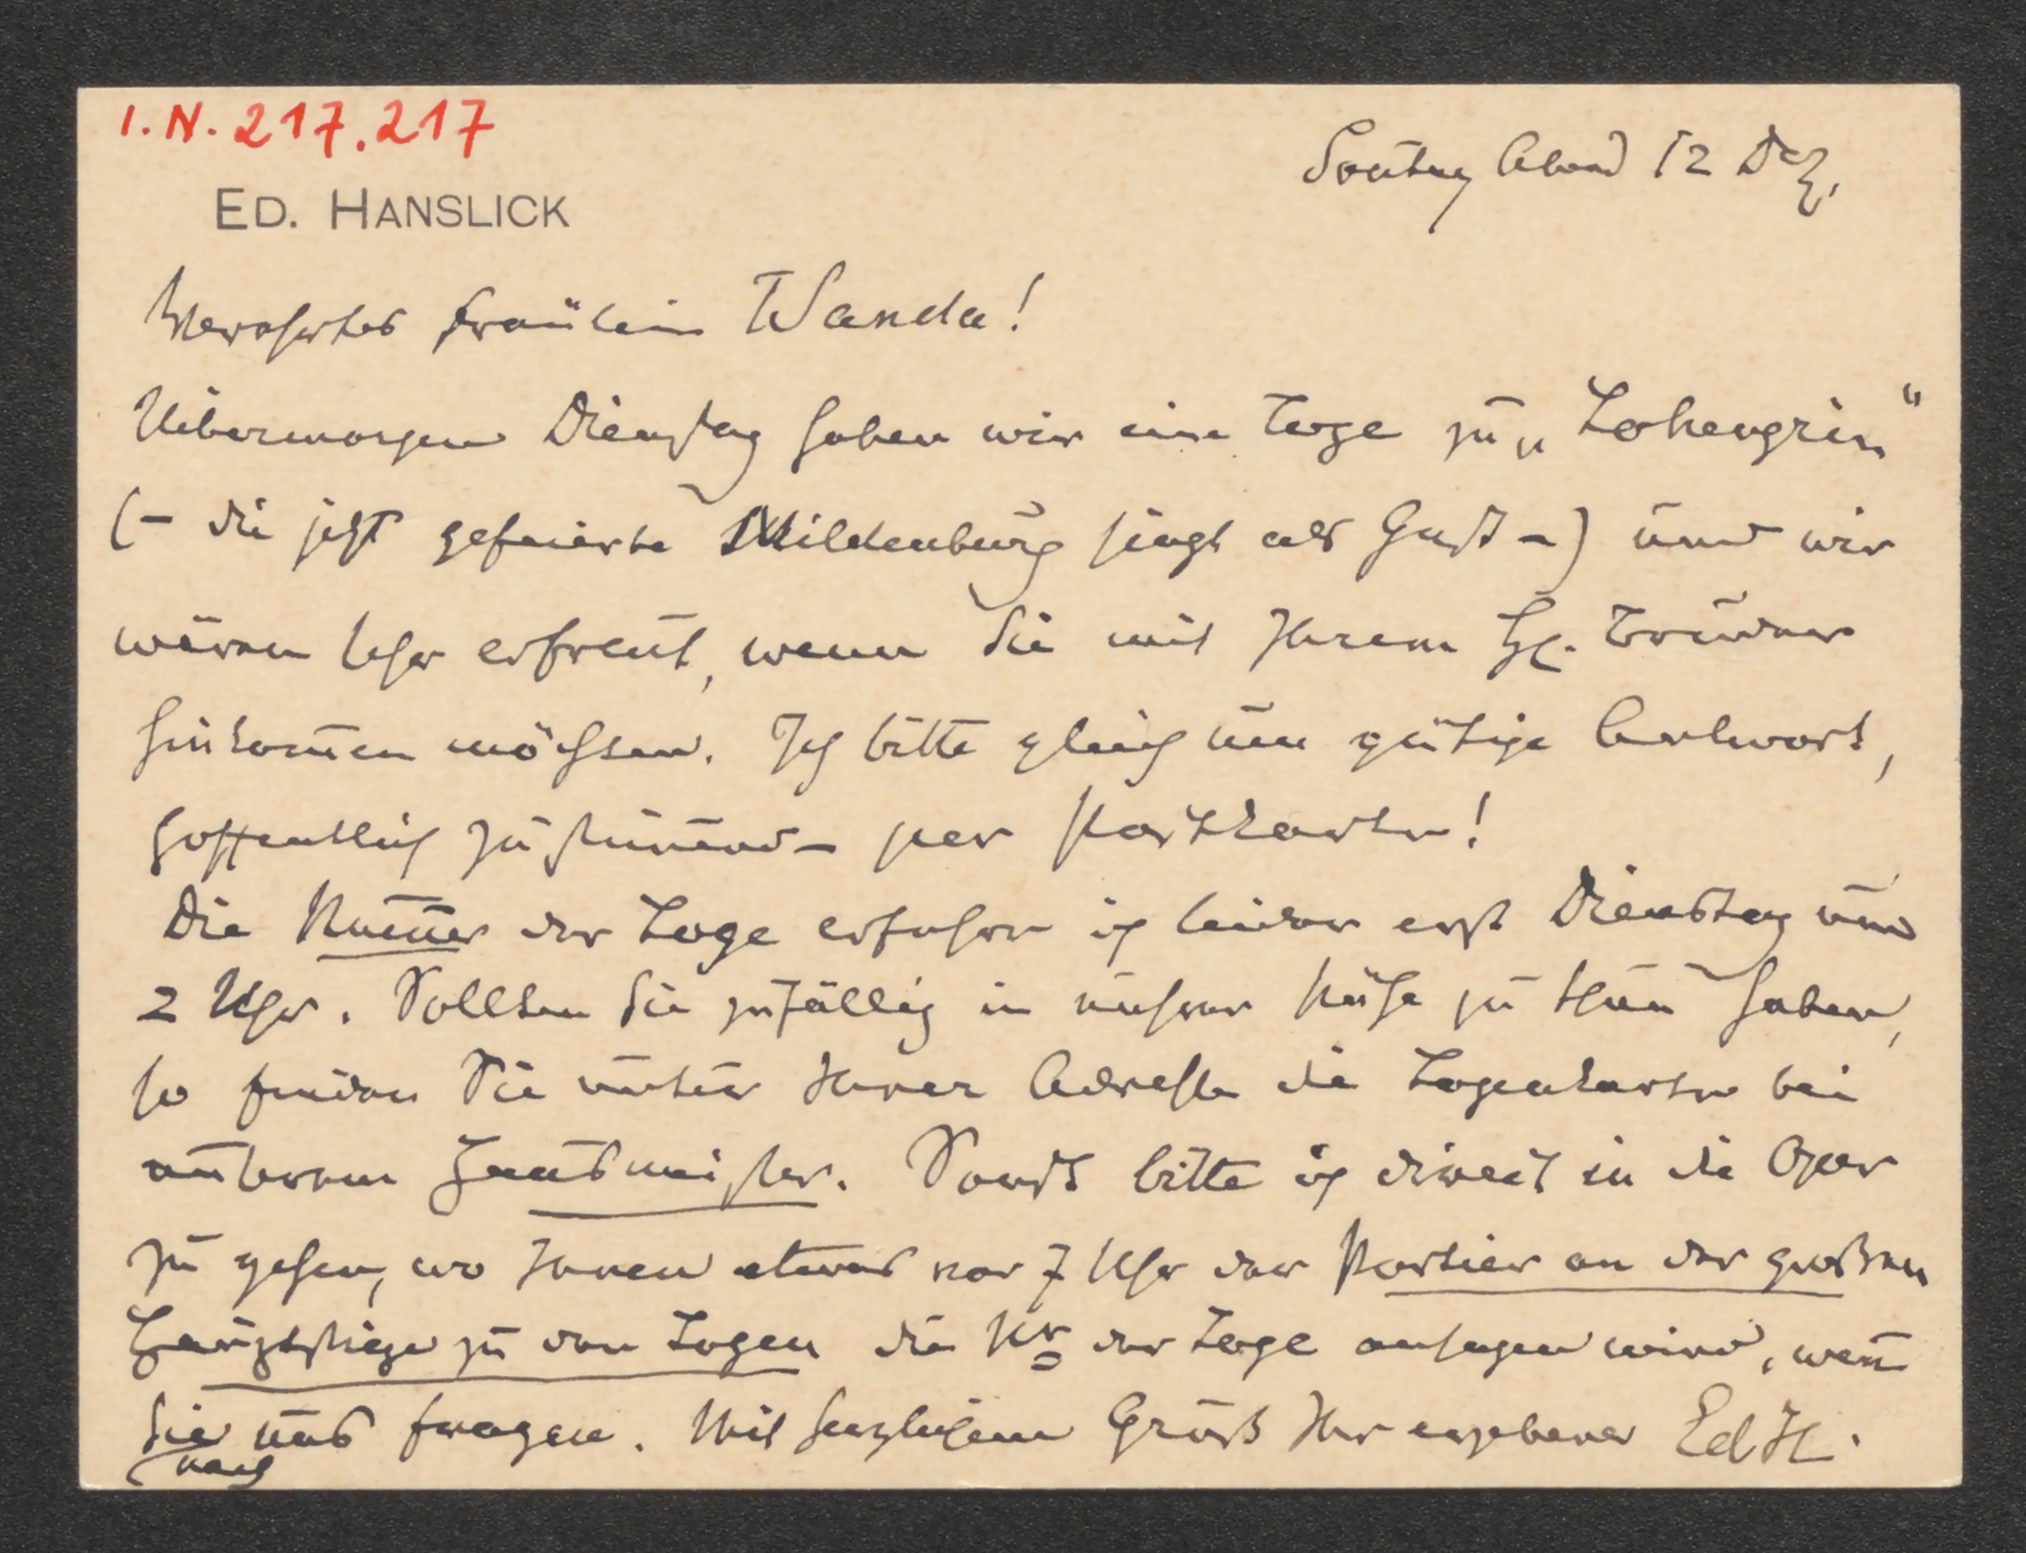 I. N. 217.217
Sontag Abend 12 Dez.
ED. HANSLICK
Verehrtes Fräulein Wanda!
Uibermorgen Dienstag haben wir eine Loge zu „Lohengrin“
(– die jetzt gefeierte Mildenburg singt als Gast –) und wir
wären sehr erfreut, wenn Sie mit Ihrem H. Bruder
hinkom̄en möchten. Ich bitte gleich um gütige Antwort,
hoffentlich zustim̄end – per Postkarte!
Die Num̄er der Loge erfahre ich leider erst Dienstag um
2 Uhr. Sollten Sie zufällig in unsrer Nähe zu thun haben,
so finden Sie unter Ihrer Adresse die Logenkarte bei
unserem Hausmeister. Sonst bitte ich direct in die Oper
zu gehen, wo Ihnen etwas vor 7 Uhr der Portier an der großen
Hauptstiege zu den Logen die Nr der Loge ansagen wird, wen̄
Sie nach uns fragen. Mit herzlichem Gruß Ihr ergebener Ed H.